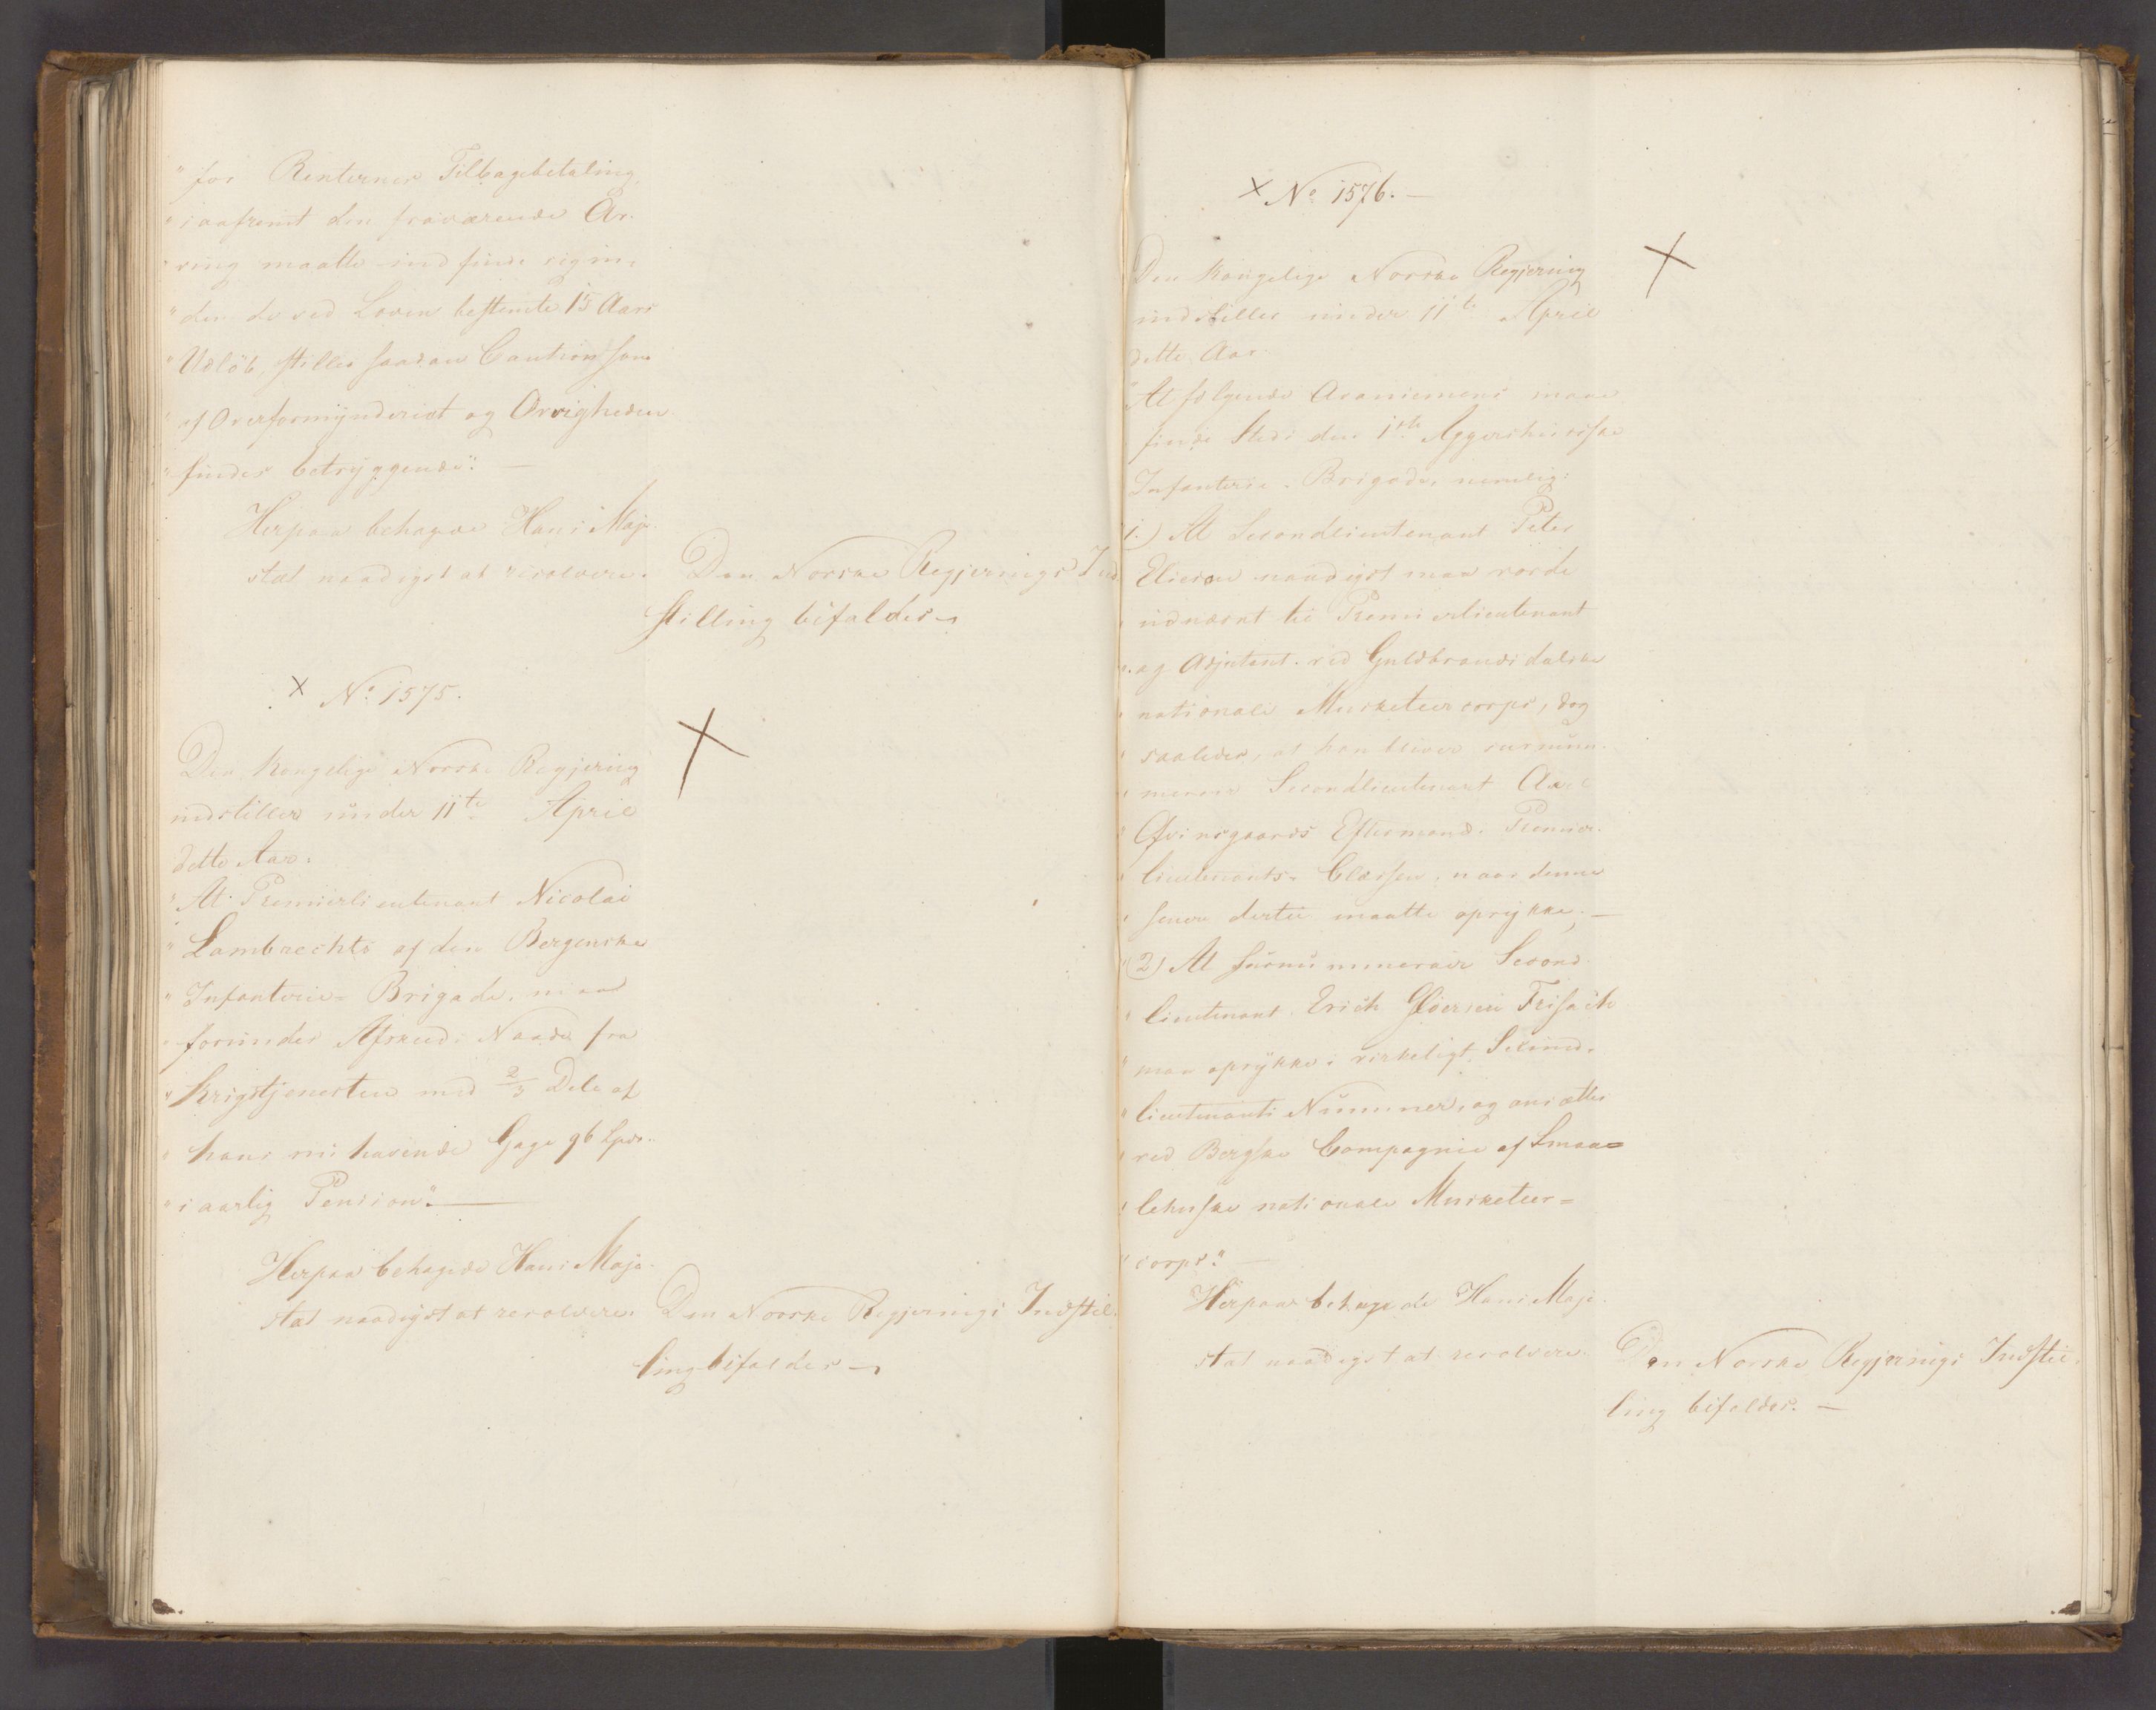 " for Renternes Tilbagebetaling,
" isaafremt den fraværende Ar-
" ving maatte indfinde sig in-
" den de ved Loven bestemte 15 Aars
" Udløb, stilles saadan Caution som
" af Overformynderiet og Øvrigheden
" findes betryggende". —
Herpaa behagede Hans Maje-
stæt naadigst at resolvere.
Den Norske Regjerings Ind-
stilling bifaldes.
× No. 1575.
Den kongelige Norske Regjering
indstiller under 11te April
dette Aar:
" At Premierlieutenant Nicolai
" Lambrechts af den Bergenske
" Infanterie-Brigade, maa
" forundes Afsked i Naade fra
" Krigstjenesten med 2/3 Dele af
" hans nu havende Gage 96 Spd.
" i aarlig Pension". —
Herpaa behagede Hans Maje-
stæt naadigst at resolvere.
Den Norske Regjerings Indstil-
ling bifaldes
× No. 1576. —
Den kongelige Norske Regjering
indstiller under 11te April
dette Aar:
" At følgende Avancement maae
finde Sted i den 1ste Aggershuusske
Infanterie-Brigade, nemlig:
1.) At Secondlieutenant Peter
Eliesen naadigst maa vorde
" udnævnt til Premierlieutenant
" og Adjutant ved Guldbrandsdalske
" nationale Musketeercorps, dog
" saaledes, at han bliver surnum-
" merair Secondlieutenant
" Qvinsgaards Eftermand i Premier-
" lieutenants-Classen, naar denne
" senere dertil maatte oprykke; —
" 2) At surnummerair Second-
" lieutenant Erich Gløersen Frisach
" maa oprykke i virkeligt Second-
" lieutenants Nummer, og ansættes
" ved Bergske Compagnie af Smaa-
" lehnske nationale Musketeer-
" corps". —
Herpaa behagede Hans Maje-
stæt naadigst at resolvere.
Den Norske Regjerings Indstil-
ling bifaldes. —